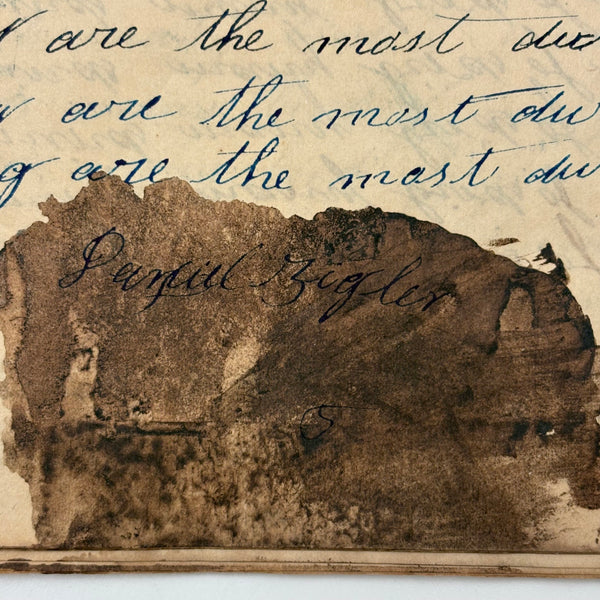 are the most du
are the most du
g are the most du
Daniel Zigler